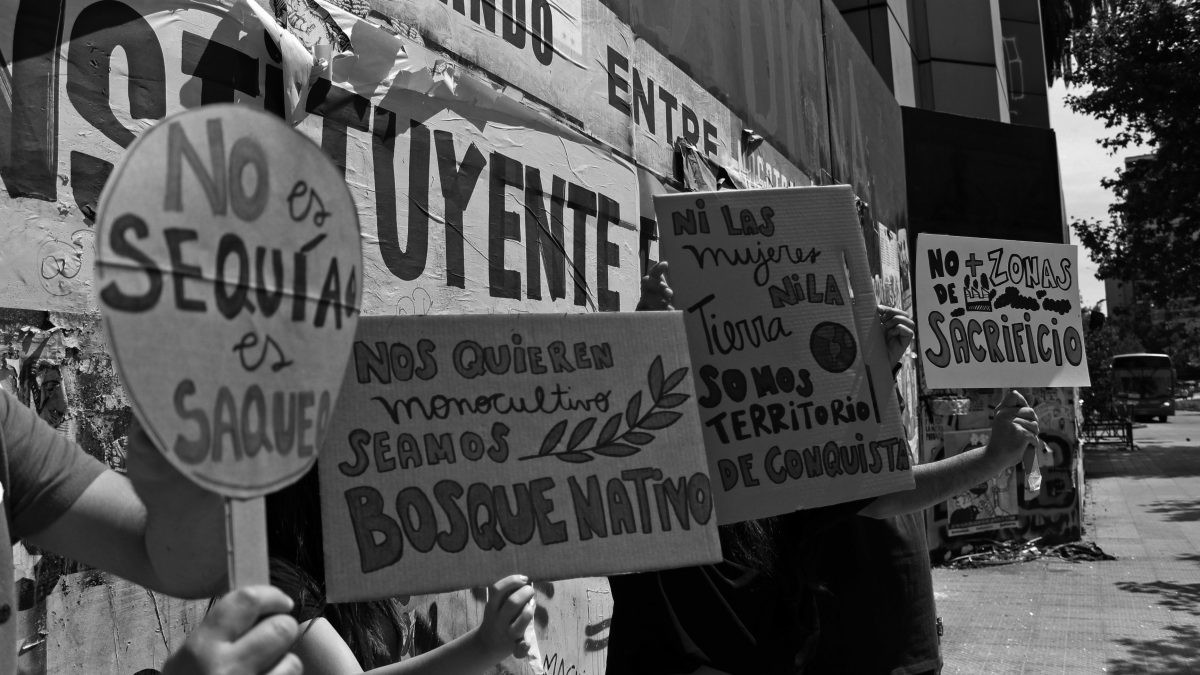 ANDO
ENTRE
NSTITUYENTE
NO es
SEQUÍA
es
SAQUEO
NOS QUIEREN
monocultivo
SEAMOS
BOSQUE NATIVO
NI LAS
mujeres
NI LA
Tierra
SOMOS
TERRITORIO
DE CONQUISTA
NO + ZONAS
DE
SACRIFICIO